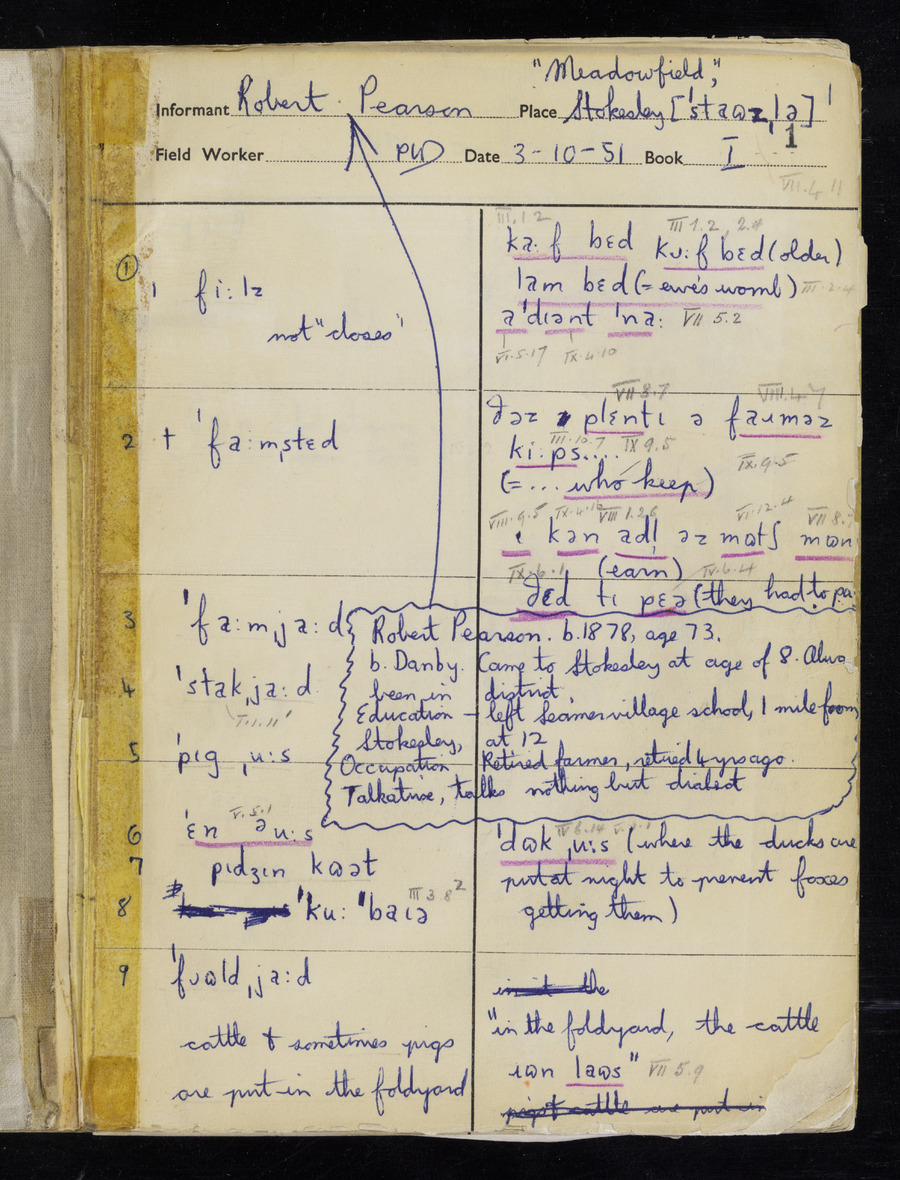 "Meadowfield",
Informant Robert Pearson Place Stokesley ['staʊz,lə]
1
Field Worker PW Date 3-10-51 Book I
VII.4.11
III.1 2 III 1.2, 2.4
ka:f bɛd kʊ:f bɛd (older)
① 1 fi:lz
lam bɛd (= ewe's womb) III.2.4
not "closes"
ə'dɪənt 'na: VII 5.2
VI.5.17 IX.4.10
VII 8.7 VIII.4.7
ðəz plɛntɪ ə faʊməz
2 + 'fa:m,stɛd
III.10.7 IX 9.5
ki:ps....
(= ... who keep) IX.9.5
VIII.9.5 VIII 1.26 VI.12.4 VII 8.
kən adl əz mɒtʃ mɒn
(earn)
IX.6.1 IV.6.4
ðɛd tɪ pɛə (they had to pa
3 'fa:m,ja:d
Robert Pearson. b. 1878, age 73.
b. Danby. Came to Stokesley at age of 8. Alwa
4 'stak,ja:d
been in district
I.1.11
Education - left Seamer village school, 1 mile from
Stokesley, at 12
5 'pɪg,u:s
Occupation Retired farmer, retired 4 yrs ago.
Talkative, talks nothing but dialect
V.5.1
6 'ɛn əu:s
IV 6.14
'dʊk,u:s (where the ducks are
7 pɪdʒɪn kʊət
put at night to prevent foxes
8 'ku: 'baɪə III 3 8²
getting them)
9 'fʊɒld,ja:d
in it the
cattle & sometimes pigs
"in the foldyard, the cattle
are put in the foldyard
ɪʊn laʊs" VII 5.9
pigs & cattle are put in